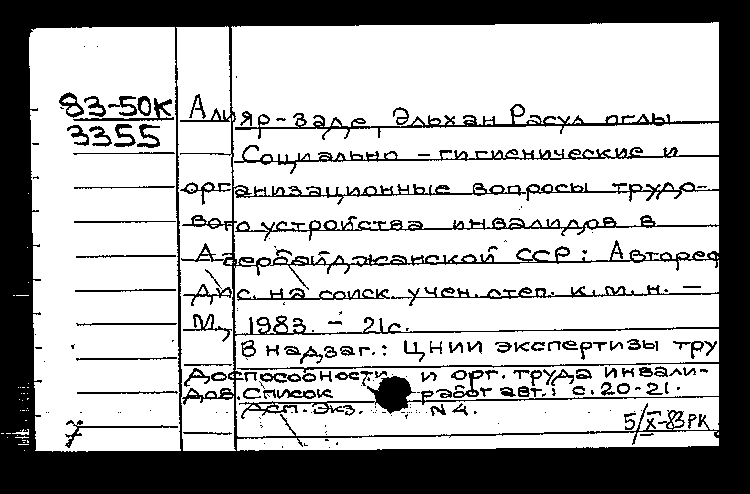 83-50К
3355
Алияр-заде, Эльхан Расул оглы
Социально-гигиенические и
организационные вопросы трудо-
вого устройства инвалидов в
Азербайджанской ССР: Автореф
дис. на соиск. учен. степ. к.м.н. –
М., 1983. – 21с.
В надзаг.: ЦНИИ экспертизы тру
доспособности и орг. труда инвали-
дов. Список работ авт.: с.20-21.
Асп. Экз. N4.
5/X-83 РК
7